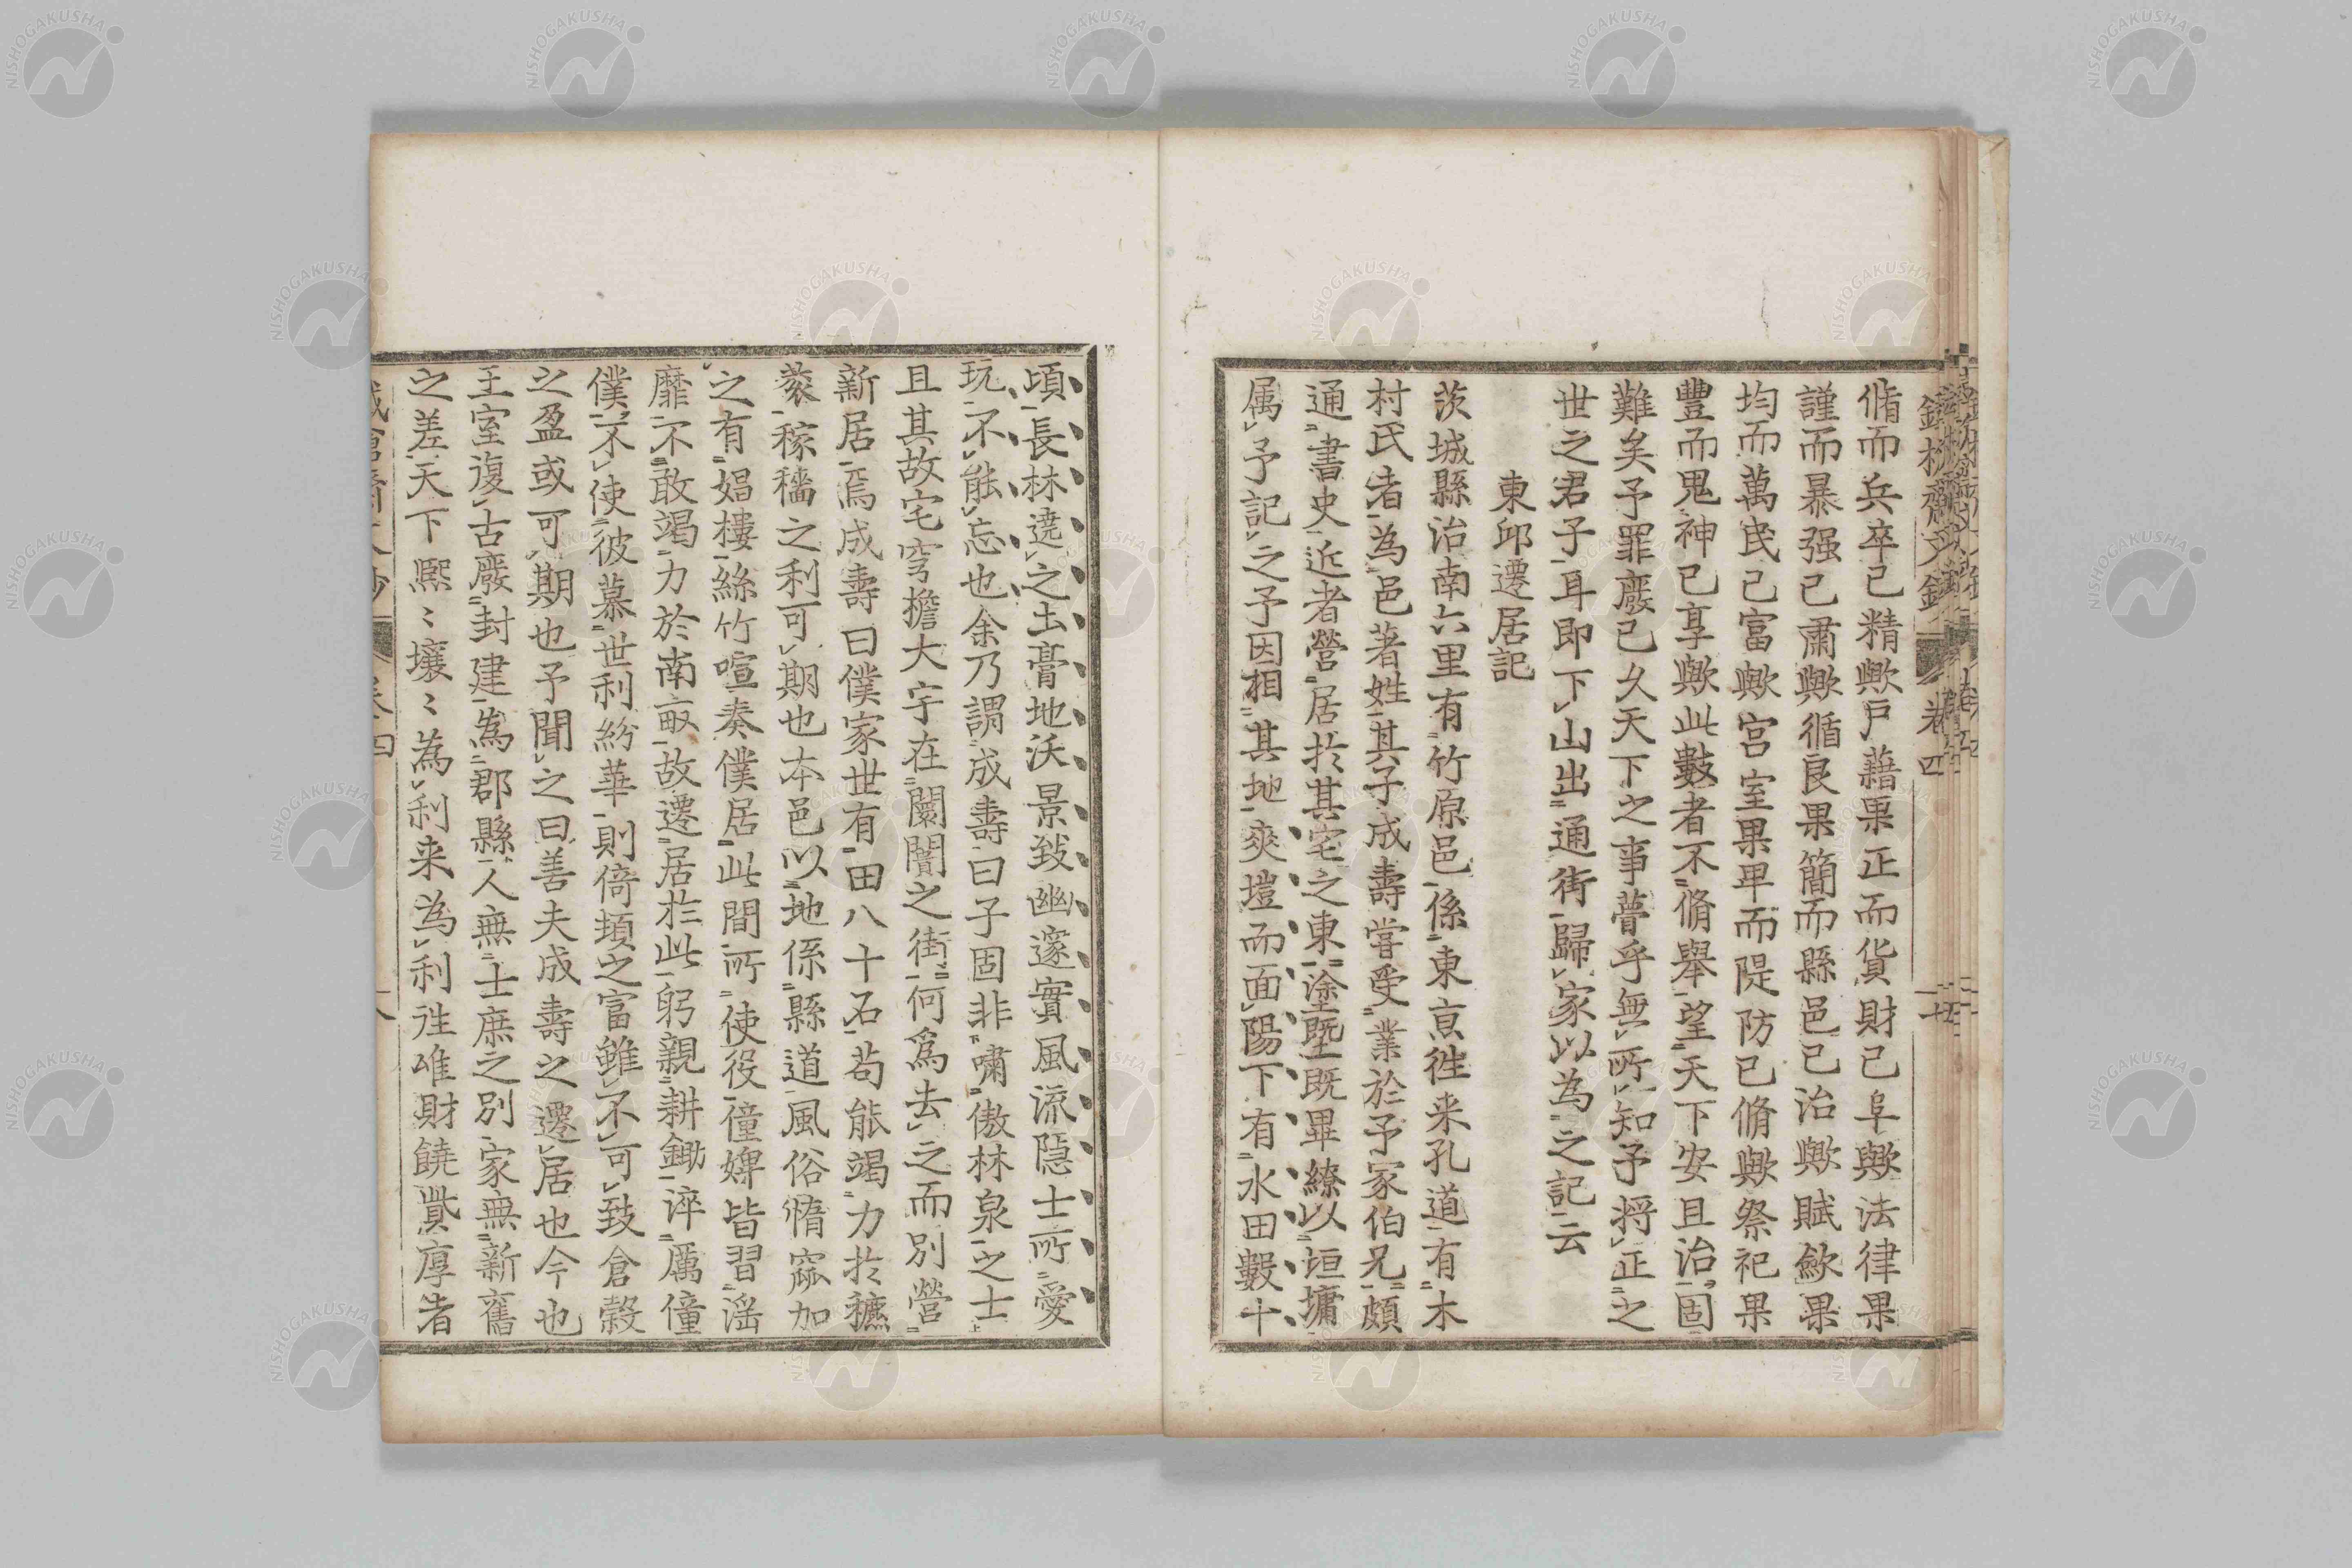 脩而兵卒已精歟戸藉果正而貨財已阜歟法律果
謹而暴强已肅歟循良果簡而縣邑已治歟賦歛果
均而萬民已富歟宮室果卑而隄防已脩歟祭祀果
豐而鬼神已享歟此數者不脩舉望天下安且治固
難矣予罪廢已久天下之事瞢乎無所知予将正之
世之君子耳即下山出通街歸家以為之記云
東邱遷居記
茨城縣治南六里有竹原邑係東京徃来孔道有木
村氏者為邑著姓其子成壽嘗受業於予冢伯兄頗
通書史近者營居於其宅之東塗墍既畢繚以垣墉
属予記之予因相其地爽塏而面陽下有水田數十
頃長林遶之土膏地沃景致幽邃實風流隠士所愛
玩不能忘也余乃謂成壽曰子固非嘯傲林泉之士
且其故宅穹檐大宇在闤闠之街何爲去之而別營
新居焉成壽曰僕家世有田八十石苟能竭力於穮
蓘稼穡之利可期也本邑以地係縣道風俗惰窳加
之有娼樓絲竹喧奏僕居此間所使役僮婢皆習滛
靡不敢竭力於南畝故遷居於此躬親耕鋤淬厲僮
僕不使彼慕世利紛華則倚頓之富雖不可致倉穀
之盈或可期也予聞之曰善夫成壽之遷居也今也
王室復古廢封建為郡縣人無士庶之別家無新舊
之差天下熙〻壤〻為利来為利徃唯財饒貲厚者
卷四